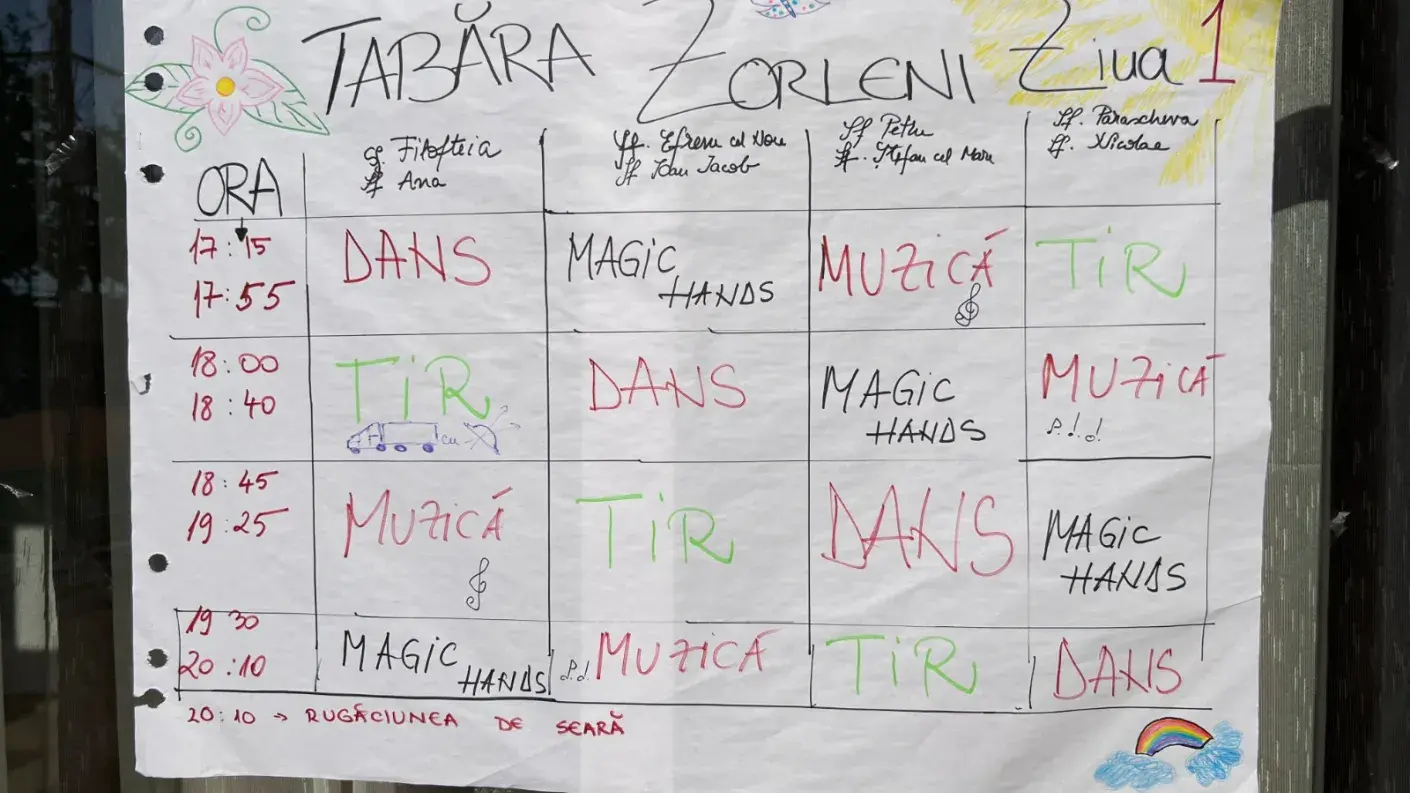 TABĂRA ZORLENI Ziua 1
ORA
Sf. Filofteia
Sf Ana
Sf. Efrem cel Nou
Sf Ioan Jacob
Sf Petru
Sf. Ștefan cel Mare
Sf. Parascheva
Sf. Nicolae
17:15
17:55
DANS
MAGiC
HANDS
MUZiCĂ
TiR
18:00
18:40
TiR
cu
DANS
MAGiC
HANDS
MUZiCĂ
18:45
19:25
MUZiCĂ
TiR
DANS
MAGiC
HANDS
19 30
20:10
MAGiC
HANDS
MUZiCĂ
TiR
DANS
20:10 → RUGĂCIUNEA DE SEARĂ